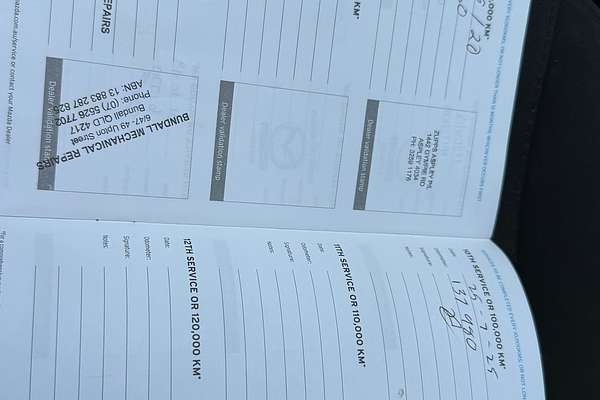 ,000 KM*
/20
KM*
EPAIRS
Dealer validation stamp
ZUPPS ASPLEY P/L
1442 GYMPIE RD
ASPLEY 4034
PH: 3259 1176
Dealer validation stamp
Dealer validation stamp
BUNDALL MECHANICAL REPAIRS
6/47-49 Upton Street
Bundall QLD 4217
Phone: (07) 5526 7702
ABN: 13 883 287 825
mazda.com.au/service or contact your Mazda Dealer
10TH SERVICE OR 100,000 KM*
Date:
25-7-25
Odometer:
137 980
Signature:
Notes:
11TH SERVICE OR 110,000 KM*
Date:
Odometer:
Signature:
Notes:
12TH SERVICE OR 120,000 KM*
Date:
Odometer:
Signature:
Notes: